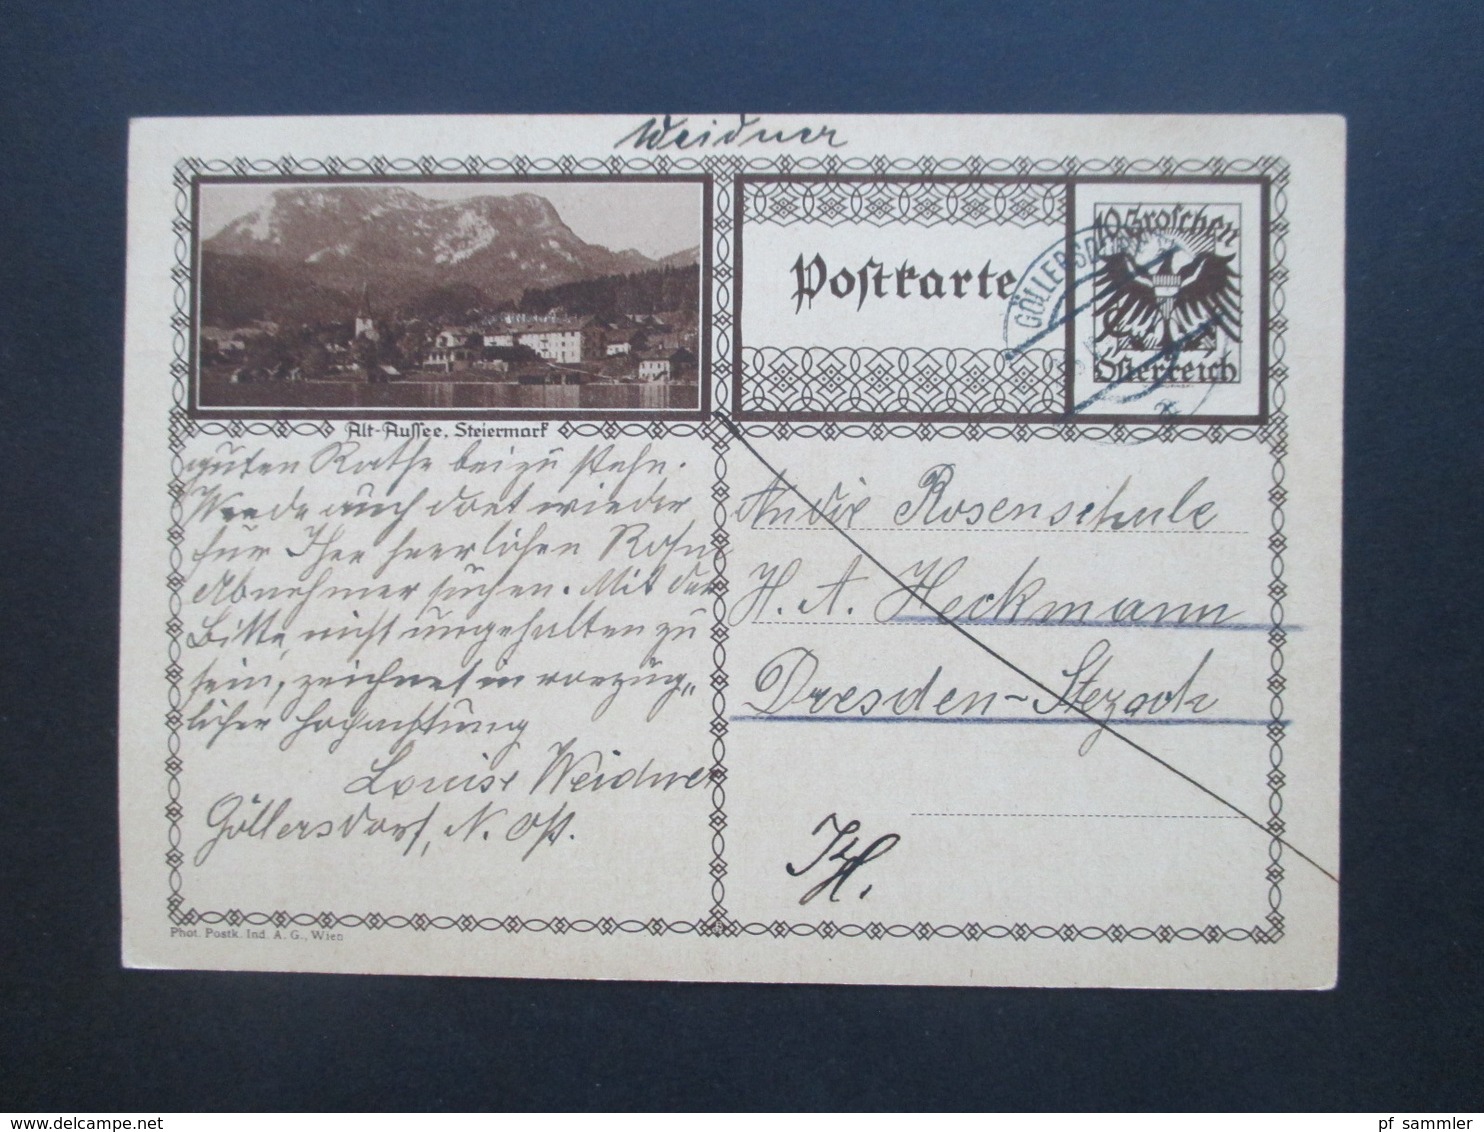 Weidner
Postkarte
10 Groschen
Österreich
GÖLLERSDORF
Alt-Aussee, Steiermark
guten Rathe beizu stehn.
Werde auch dort wieder
für Ihre herrlichen Rosen
Abnehmer suchen. Mit der
Bitte, nicht ungehalten zu
sein, zeichnet in vorzüg„
licher Hochachtung
Louise Weidner
Göllersdorf, N. Öst.
An die Rosenschule
H. A. Heckmann
Dresden-
Phot. Postk. Ind. A. G., Wien
pf_sammler